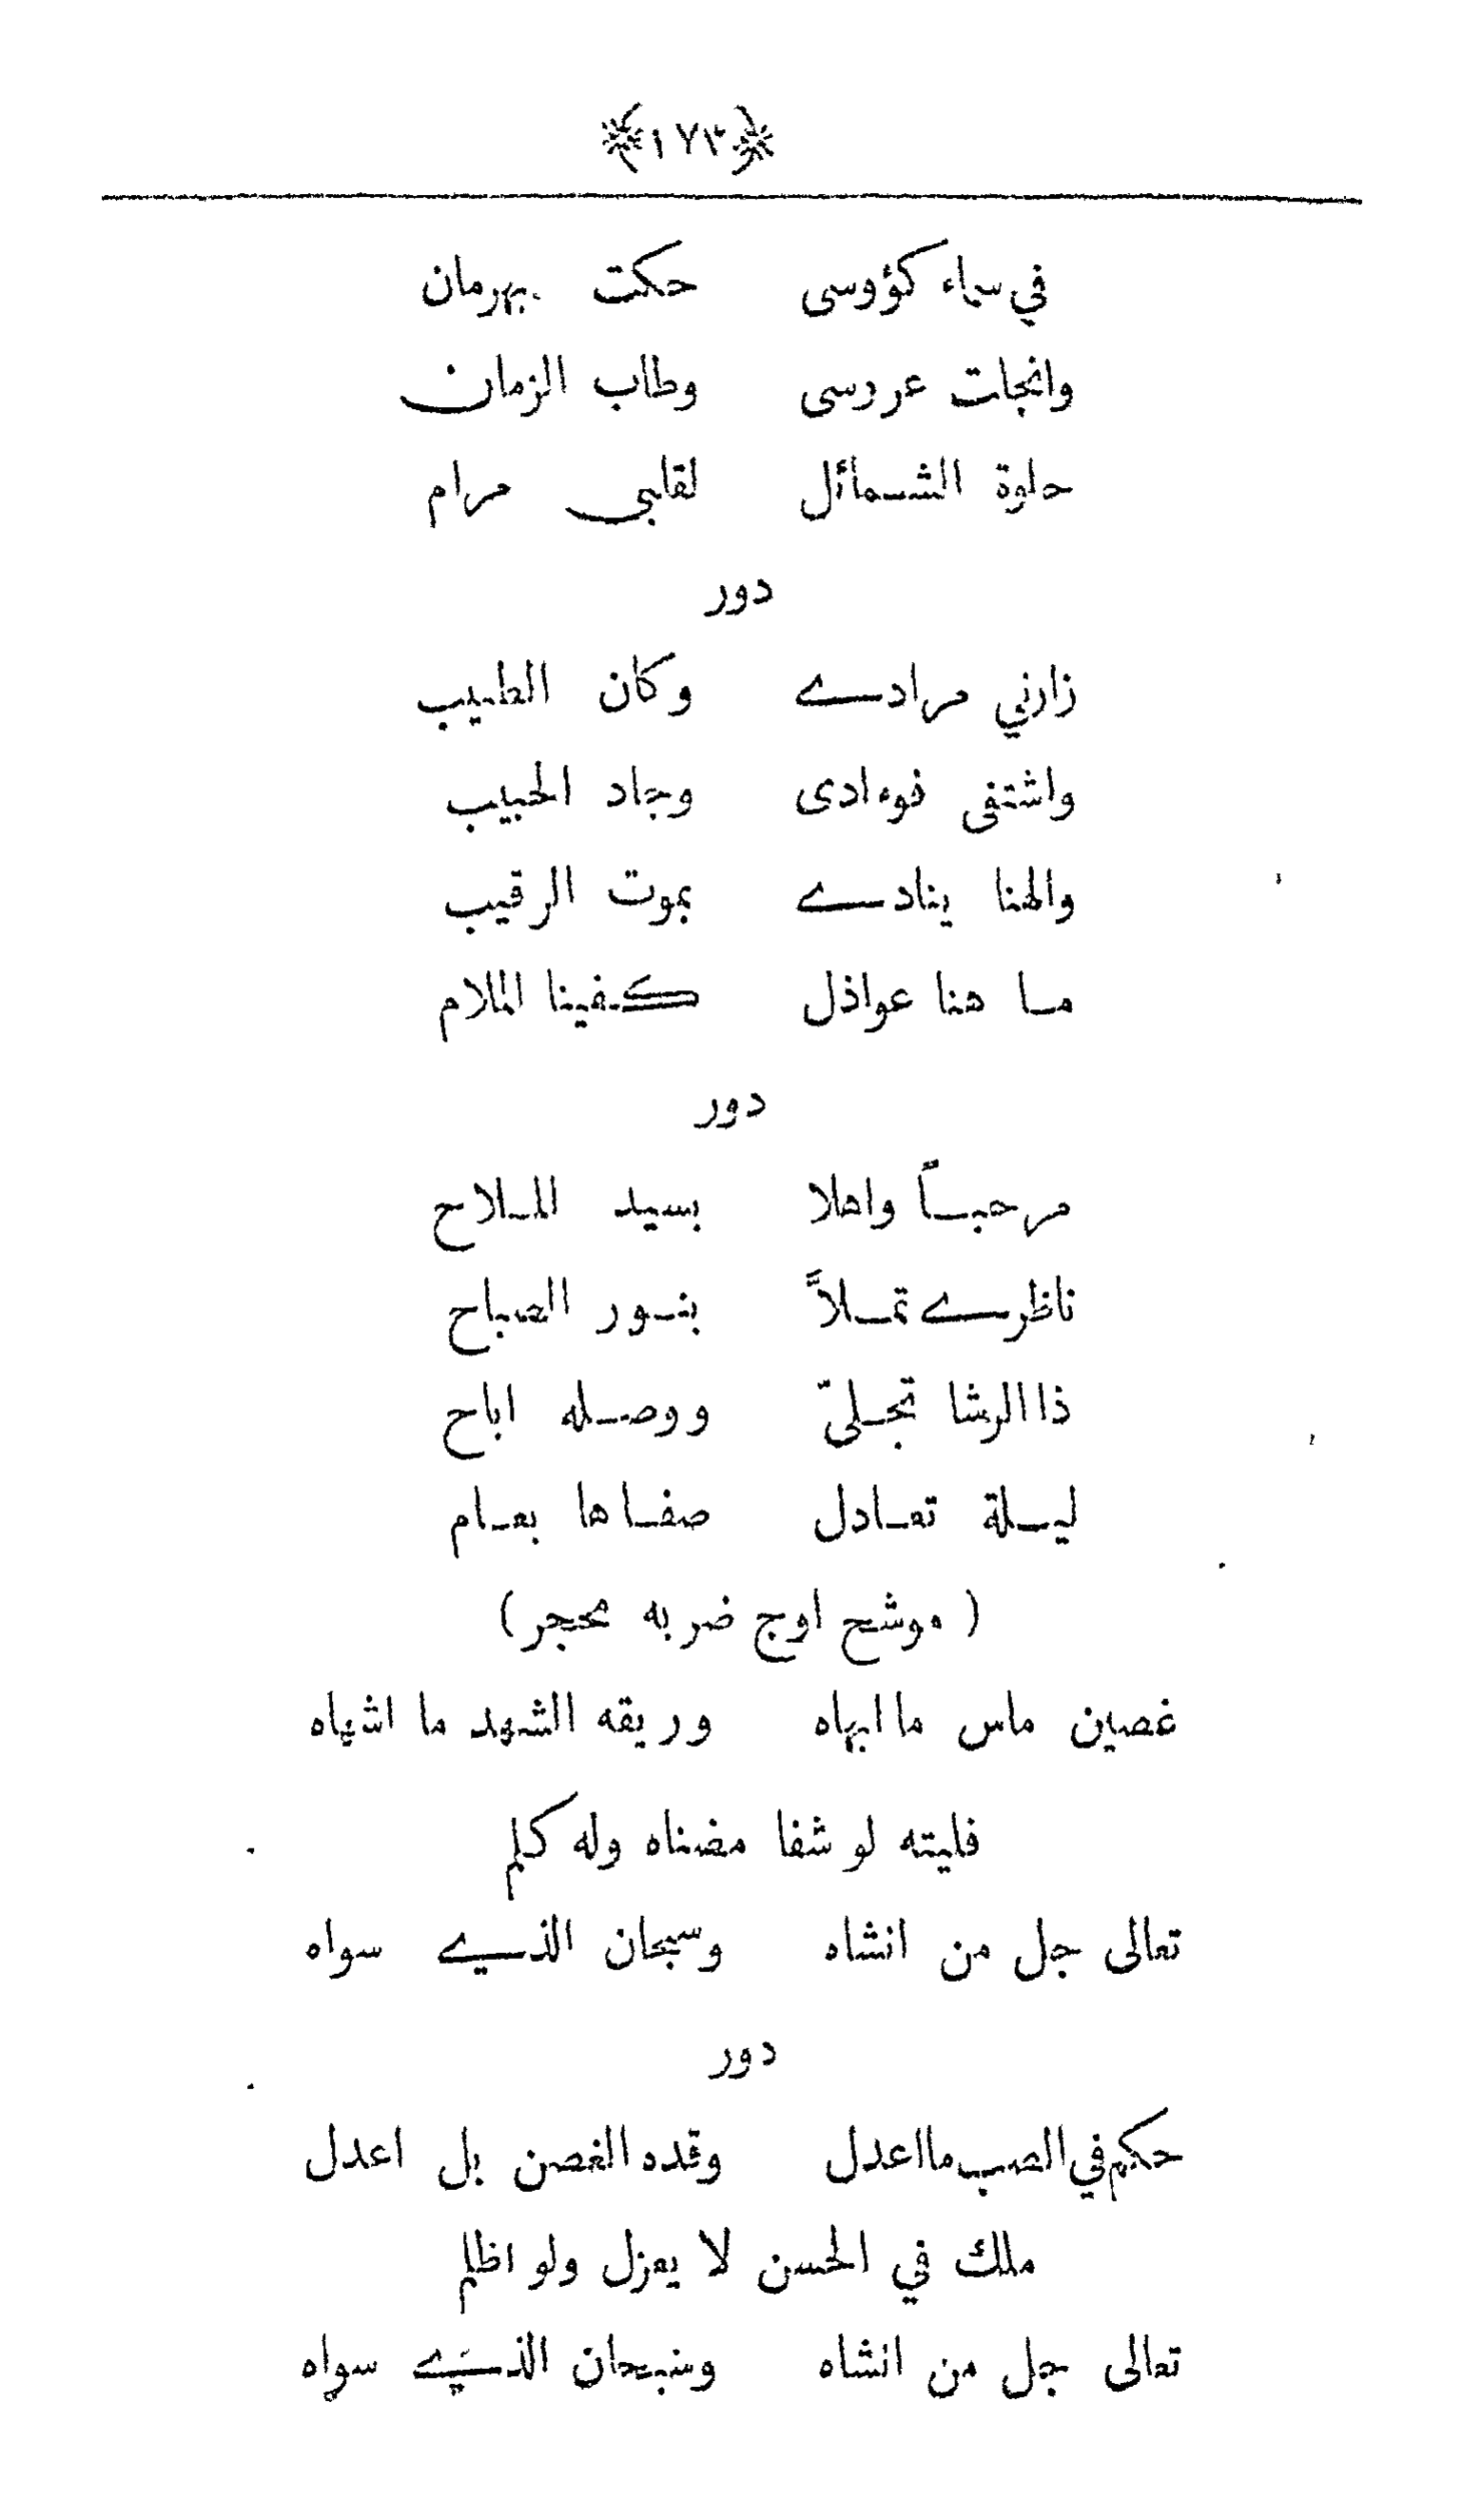 ﴿١٧٣﴾
في سماء كؤوسى حكت بهرمان
وانجلت عروسى وطاب الزمان
حلوة الشمائل لقلبى مرام
دور
زارني مرادے وكان الطبيب
واشتفى فوءادى وجاد الحبيب
والهنا ينادے بموت الرقيب
ما هنا عواذل كفينا الملام
دور
مرحباً واهلا بسيد الملاح
ناظرے تملاً بنور الصباح
ذا الرشا تجلىّ ووصله اباح
ليلة تعادل صفاها بعام
( موشح اوج ضربه محجر )
غصين ماس ما ابهاه وريقه الشهد ما اشهاه
فليته لو شفا مضناه وله كلم
تعالى جل من انشاه وسبحان الذے سواه
دور
حكم في الصب ما اعدل وقده الغصن بل اعدل
ملك في الحسن لا يعزل ولو اظلم
تعالى جل من انشاه وسبحان الذے سواه